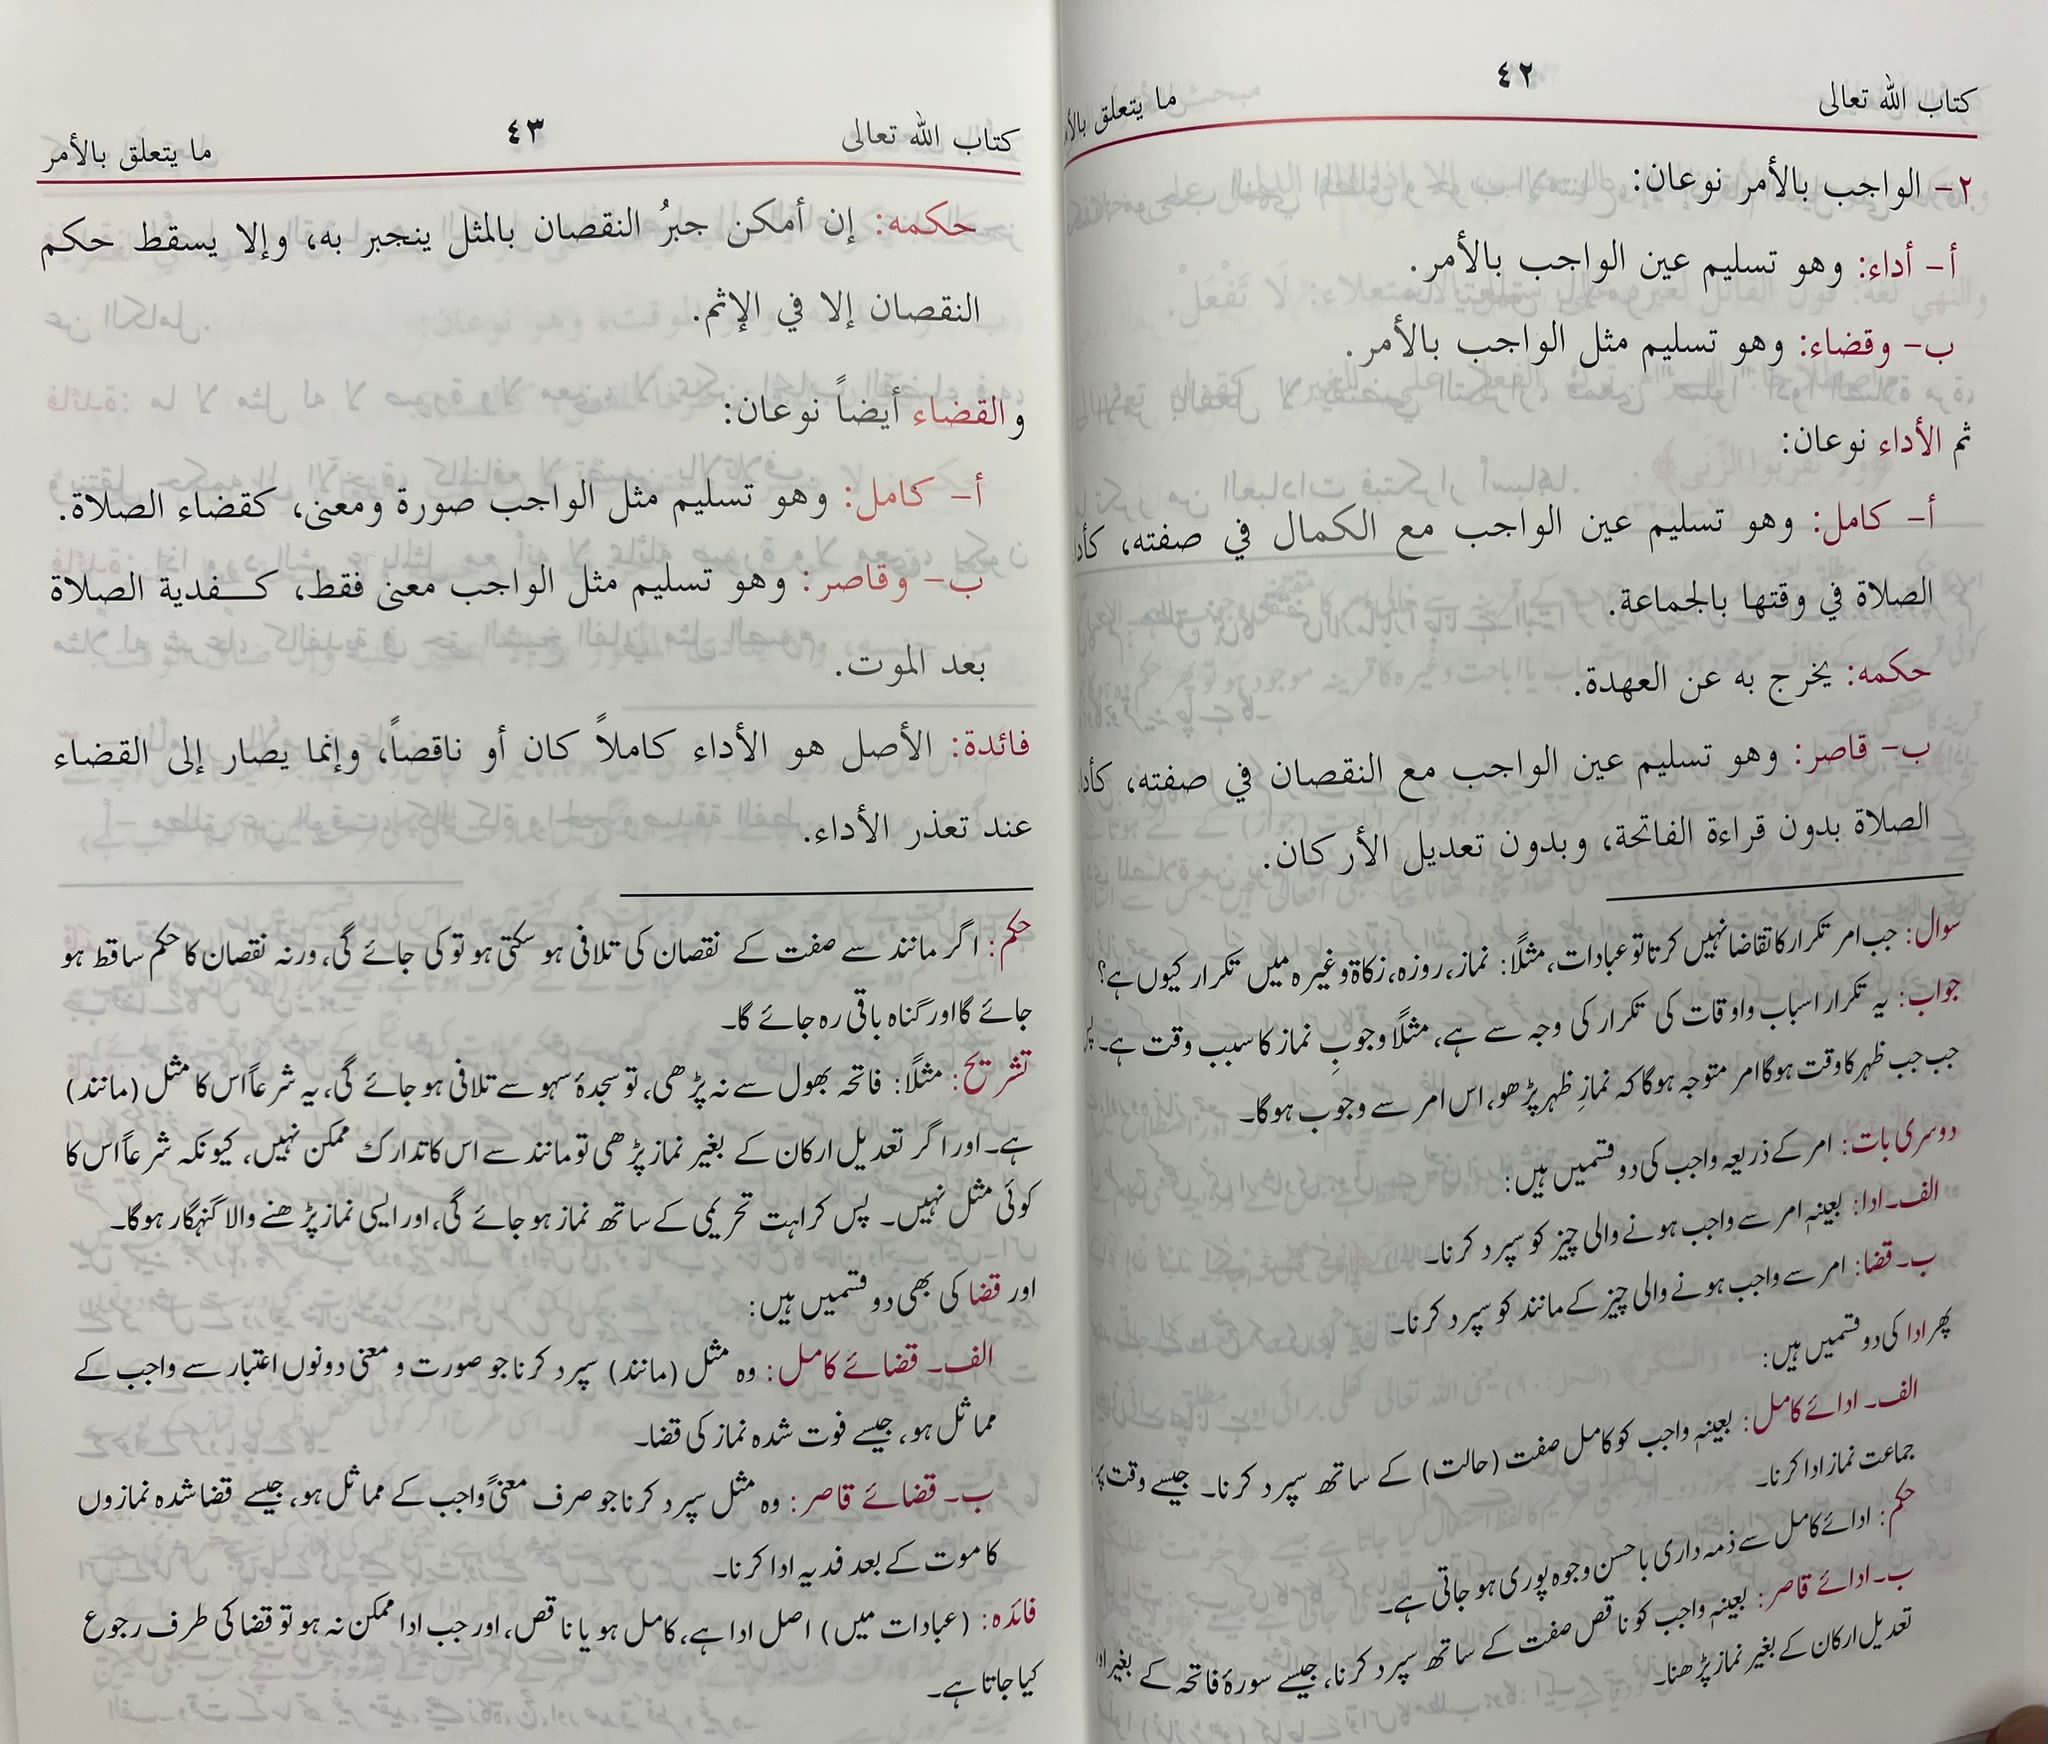 كتاب الله تعالى
٤٢
ما يتعلق
٢- الواجب بالأمر نوعان:
أ- أداء: وهو تسليم عين الواجب بالأمر.
ب- وقضاء: وهو تسليم مثل الواجب بالأمر.
ثم الأداء نوعان:
أ- كامل: وهو تسليم عين الواجب مع الكمال في صفته،
الصلاة في وقتها بالجماعة.
حكمه: يخرج به عن العهدة.
ب- قاصر: وهو تسليم عين الواجب مع النقصان في صفته،
الصلاة بدون قراءة الفاتحة، وبدون تعديل الأركان.
سوال: جب امر تکرار کا تقاضا نہیں کرتا تو عبادات، مثلًا: نماز، روزہ، زکاۃ وغیرہ میں تکرار کیوں ہے؟
جواب: یہ تکرار اسباب واوقات کی تکرار کی وجہ سے ہے، مثلًا وجوبِ نماز کا سبب وقت ہے۔
جب جب ظہر کا وقت ہوگا امر متوجہ ہوگا کہ نمازِ ظہر پڑھو، اس امر سے وجوب ہوگا۔
دوسری بات: امر کے ذریعہ واجب کی دو قسمیں ہیں:
الف۔ ادا: بعینہٖ امر سے واجب ہونے والی چیز کو سپرد کرنا۔
ب۔ قضا: امر سے واجب ہونے والی چیز کے مانند کو سپرد کرنا۔
پھر ادا کی دو قسمیں ہیں:
الف۔ ادائے کامل: بعینہٖ واجب کو کامل صفت (حالت) کے ساتھ سپرد کرنا۔ جیسے وقت پر
جماعت نماز ادا کرنا۔
حکم: ادائے کامل سے ذمہ داری باحسن وجوہ پوری ہو جاتی ہے۔
ب۔ ادائے قاصر: بعینہٖ واجب کو ناقص صفت کے ساتھ سپرد کرنا، جیسے سورۂ فاتحہ کے بغیر
تعدیل ارکان کے بغیر نماز پڑھنا۔
كتاب الله تعالى
٤٣
ما يتعلق بالأمر
حكمه: إن أمكن جبرُ النقصان بالمثل ينجبر به، وإلا يسقط حكم
النقصان إلا في الإثم.
والقضاء أيضاً نوعان:
أ- كامل: وهو تسليم مثل الواجب صورة ومعنى، كقضاء الصلاة.
ب- وقاصر: وهو تسليم مثل الواجب معنى فقط، كـفدية الصلاة
بعد الموت.
فائدة: الأصل هو الأداء كاملاً كان أو ناقصاً، وإنما يصار إلى القضاء
عند تعذر الأداء.
حکم: اگر مانند سے صفت کے نقصان کی تلافی ہو سکتی ہو تو کی جائے گی، ورنہ نقصان کا حکم ساقط ہو
جائے گا اور گناہ باقی رہ جائے گا۔
تشریح: مثلًا: فاتحہ بھول سے نہ پڑھی، تو سجدۂ سہو سے تلافی ہو جائے گی، یہ شرعاً اس کا مثل (مانند)
ہے۔ اور اگر تعدیل ارکان کے بغیر نماز پڑھی تو مانند سے اس کا تدارک ممکن نہیں، کیونکہ شرعاً اس کا
کوئی مثل نہیں۔ پس کراہت تحریمی کے ساتھ نماز ہو جائے گی، اور ایسی نماز پڑھنے والا گنہگار ہوگا۔
اور قضا کی بھی دو قسمیں ہیں:
الف۔ قضائے کامل: وہ مثل (مانند) سپرد کرنا جو صورت و معنی دونوں اعتبار سے واجب کے
مماثل ہو، جیسے فوت شدہ نماز کی قضا۔
ب۔ قضائے قاصر: وہ مثل سپرد کرنا جو صرف معنیً واجب کے مماثل ہو، جیسے قضا شدہ نمازوں
کا موت کے بعد فدیہ ادا کرنا۔
فائدہ: (عبادات میں) اصل ادا ہے، کامل ہو یا ناقص، اور جب ادا ممکن نہ ہو تو قضا کی طرف رجوع
کیا جاتا ہے۔